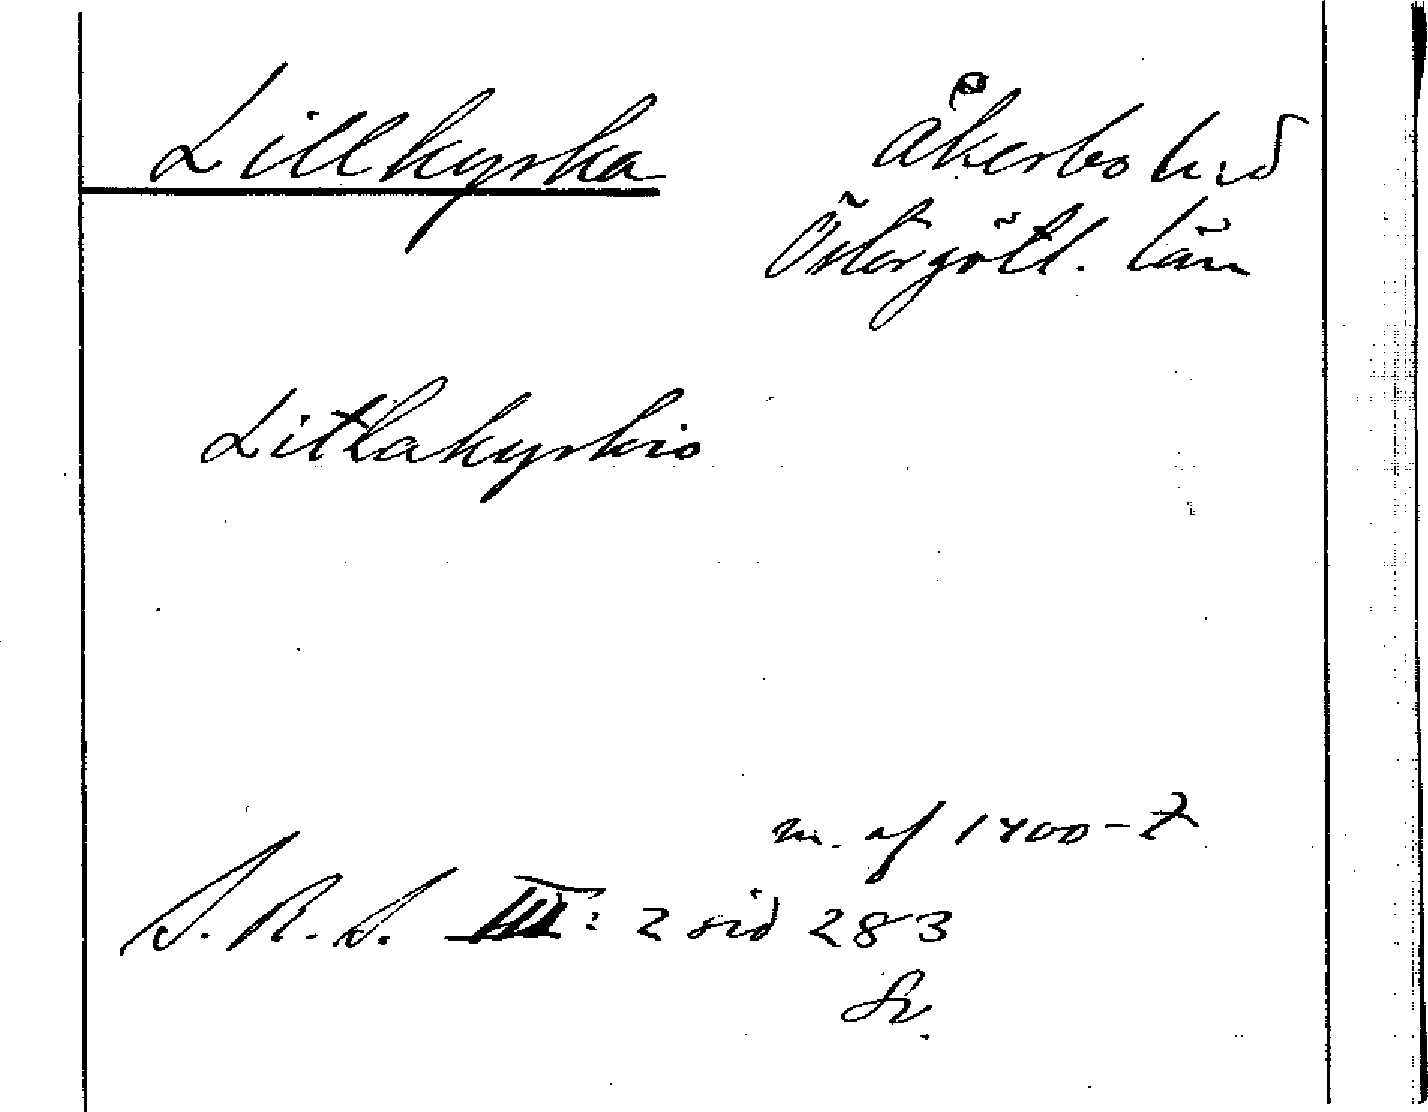 Lillkyrka Åkerbo hrd
Östergötl. län
Litlakyrkio
m. af 1400-t
S. R. S. III: 2 sid 283